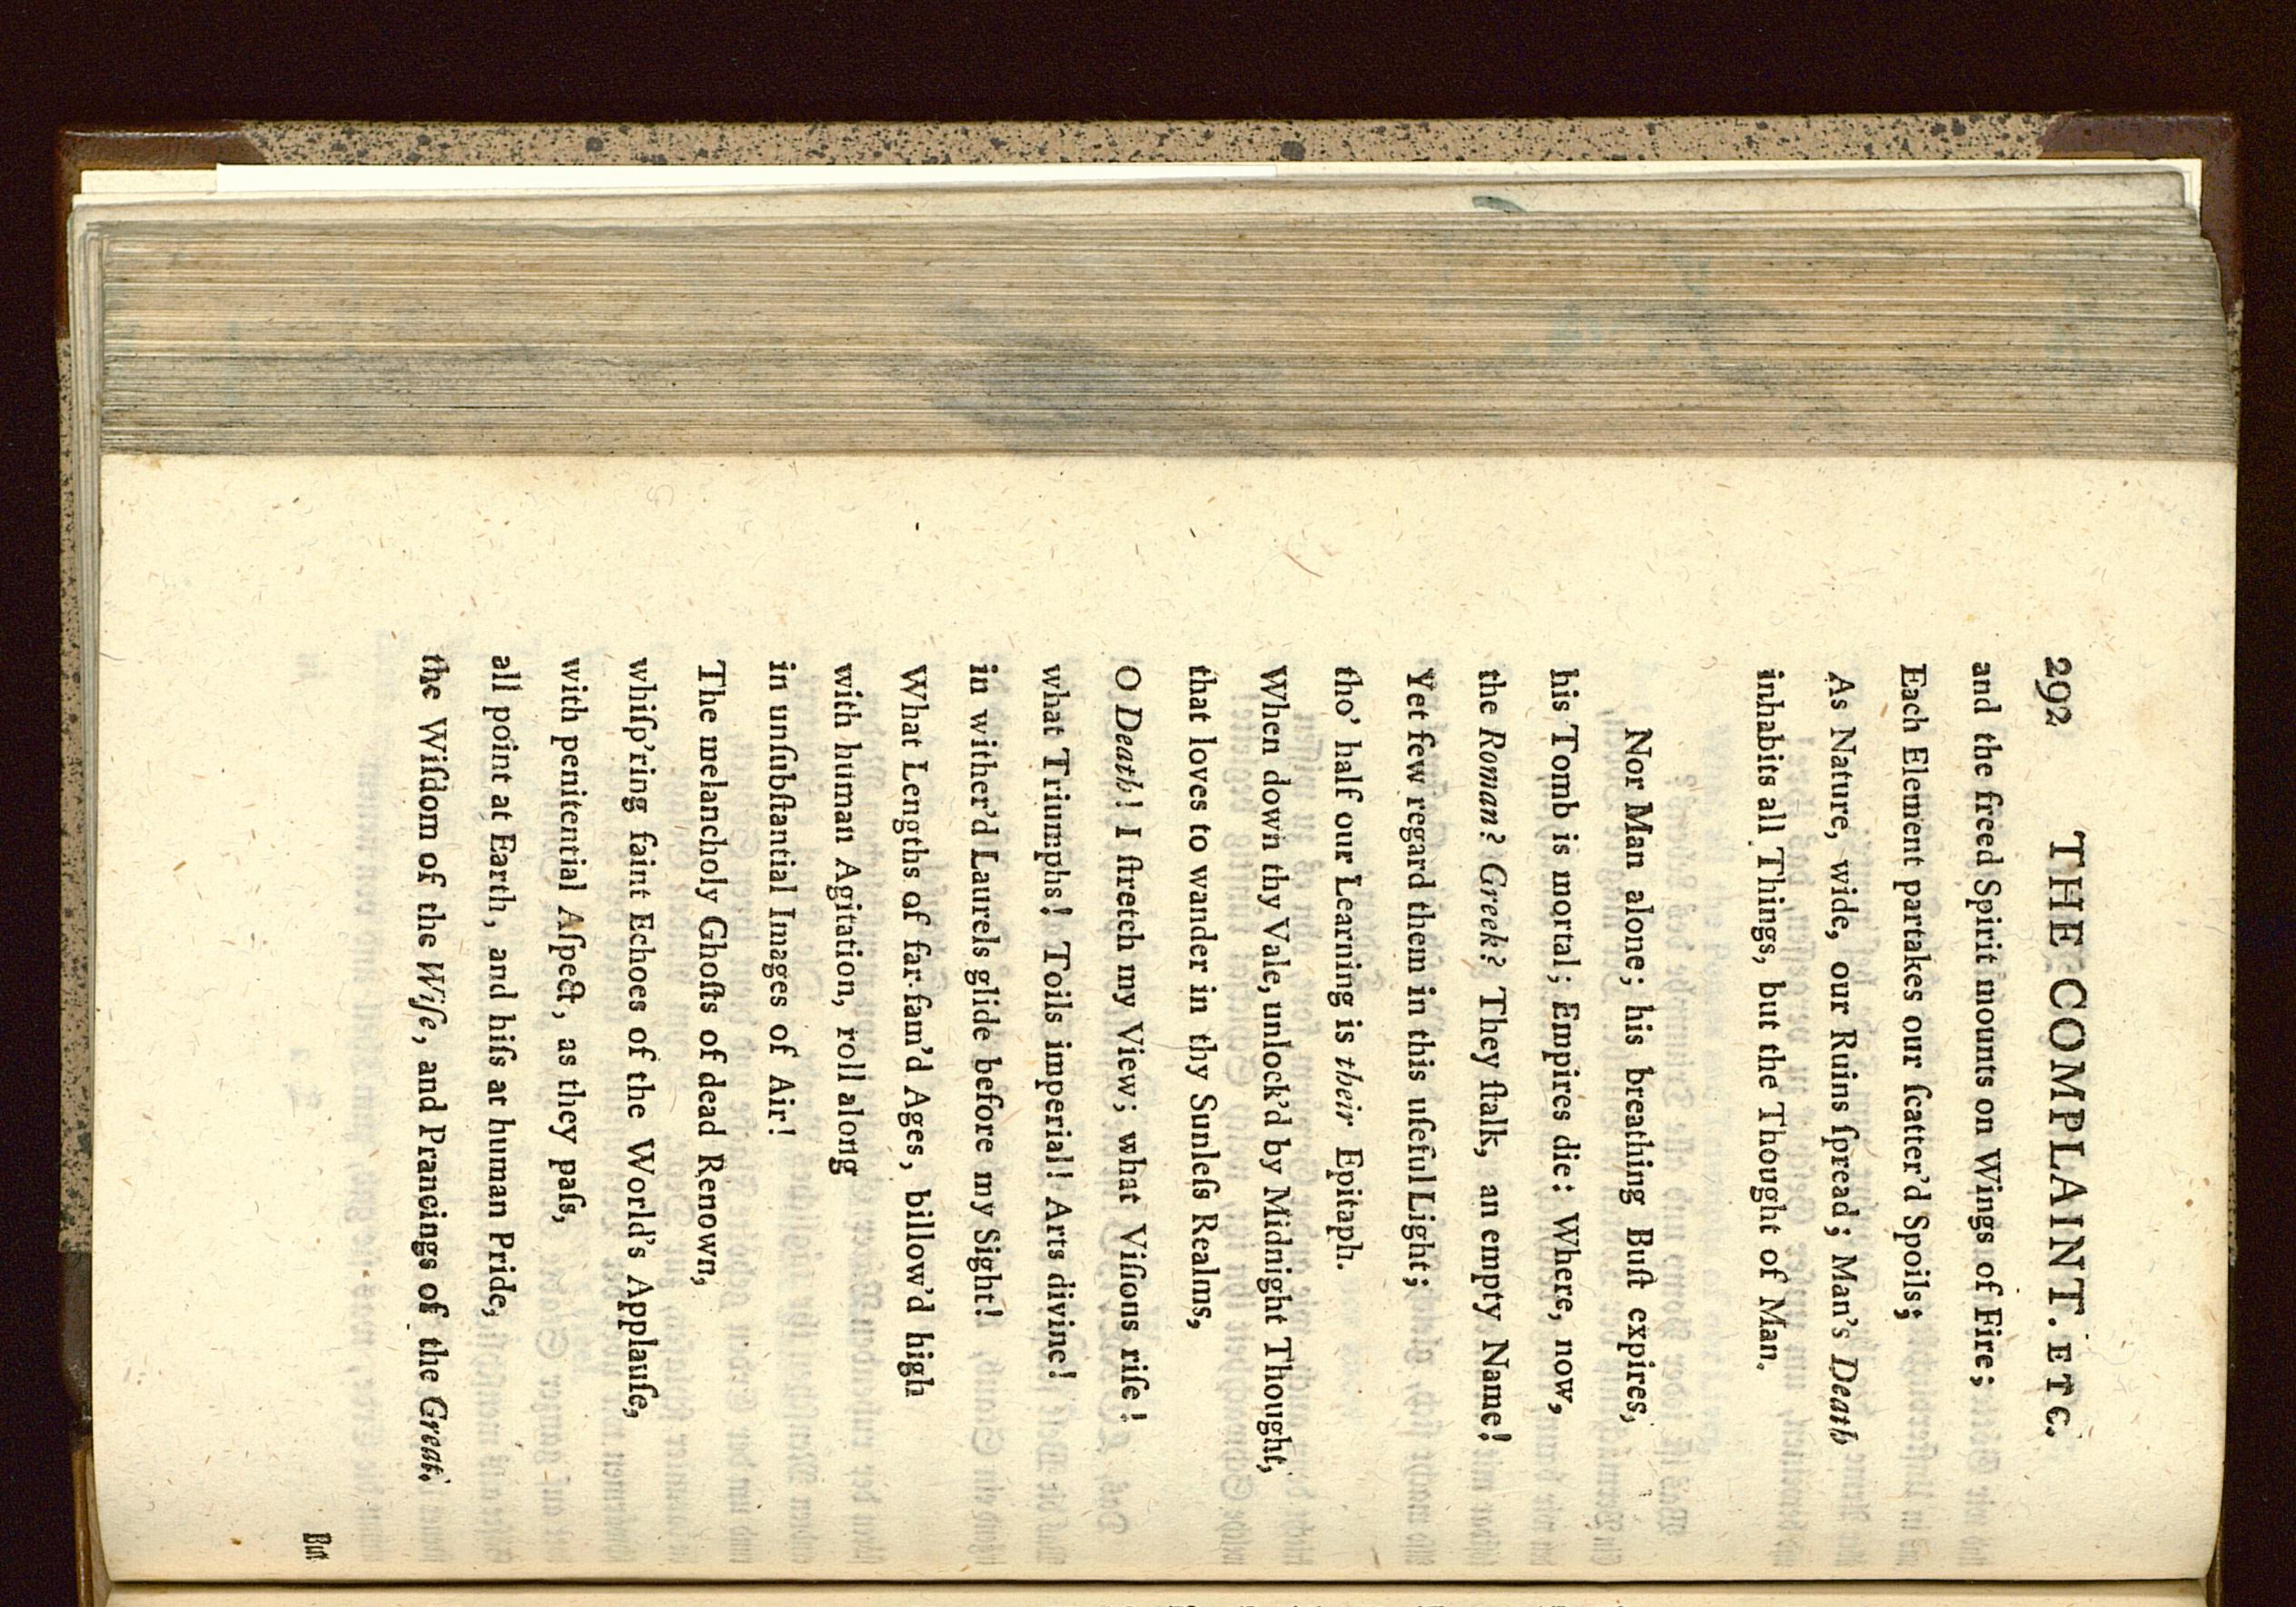 292 THE COMPLAINT. ETC.
and the freed Spirit mounts on Wings of Fire;
Each Element partakes our ſcatter'd Spoils;
As Nature, wide, our Ruins ſpread; Man's Death
inhabits all Things, but the Thought of Man.
Nor Man alone; his breathing Buſt expires,
his Tomb is mortal; Empires die: Where, now,
the Roman? Greek? They ſtalk, an empty Name!
Yet few regard them in this uſeful Light;
tho' half our Learning is their Epitaph.
When down thy Vale, unlock'd by Midnight Thought,
that loves to wander in thy Sunleſs Realms,
O Death! I ſtretch my View; what Viſions riſe!
what Triumphs! Toils imperial! Arts divine!
in wither'd Laurels glide before my Sight!
What Lengths of far-fam'd Ages, billow'd high
with human Agitation, roll along
in unſubſtantial Images of Air!
The melancholy Ghoſts of dead Renown,
whiſp'ring faint Echoes of the World's Applauſe,
with penitential Aſpect, as they paſs,
all point at Earth, and hiſs at human Pride,
the Wiſdom of the Wiſe, and Prancings of the Great.
But